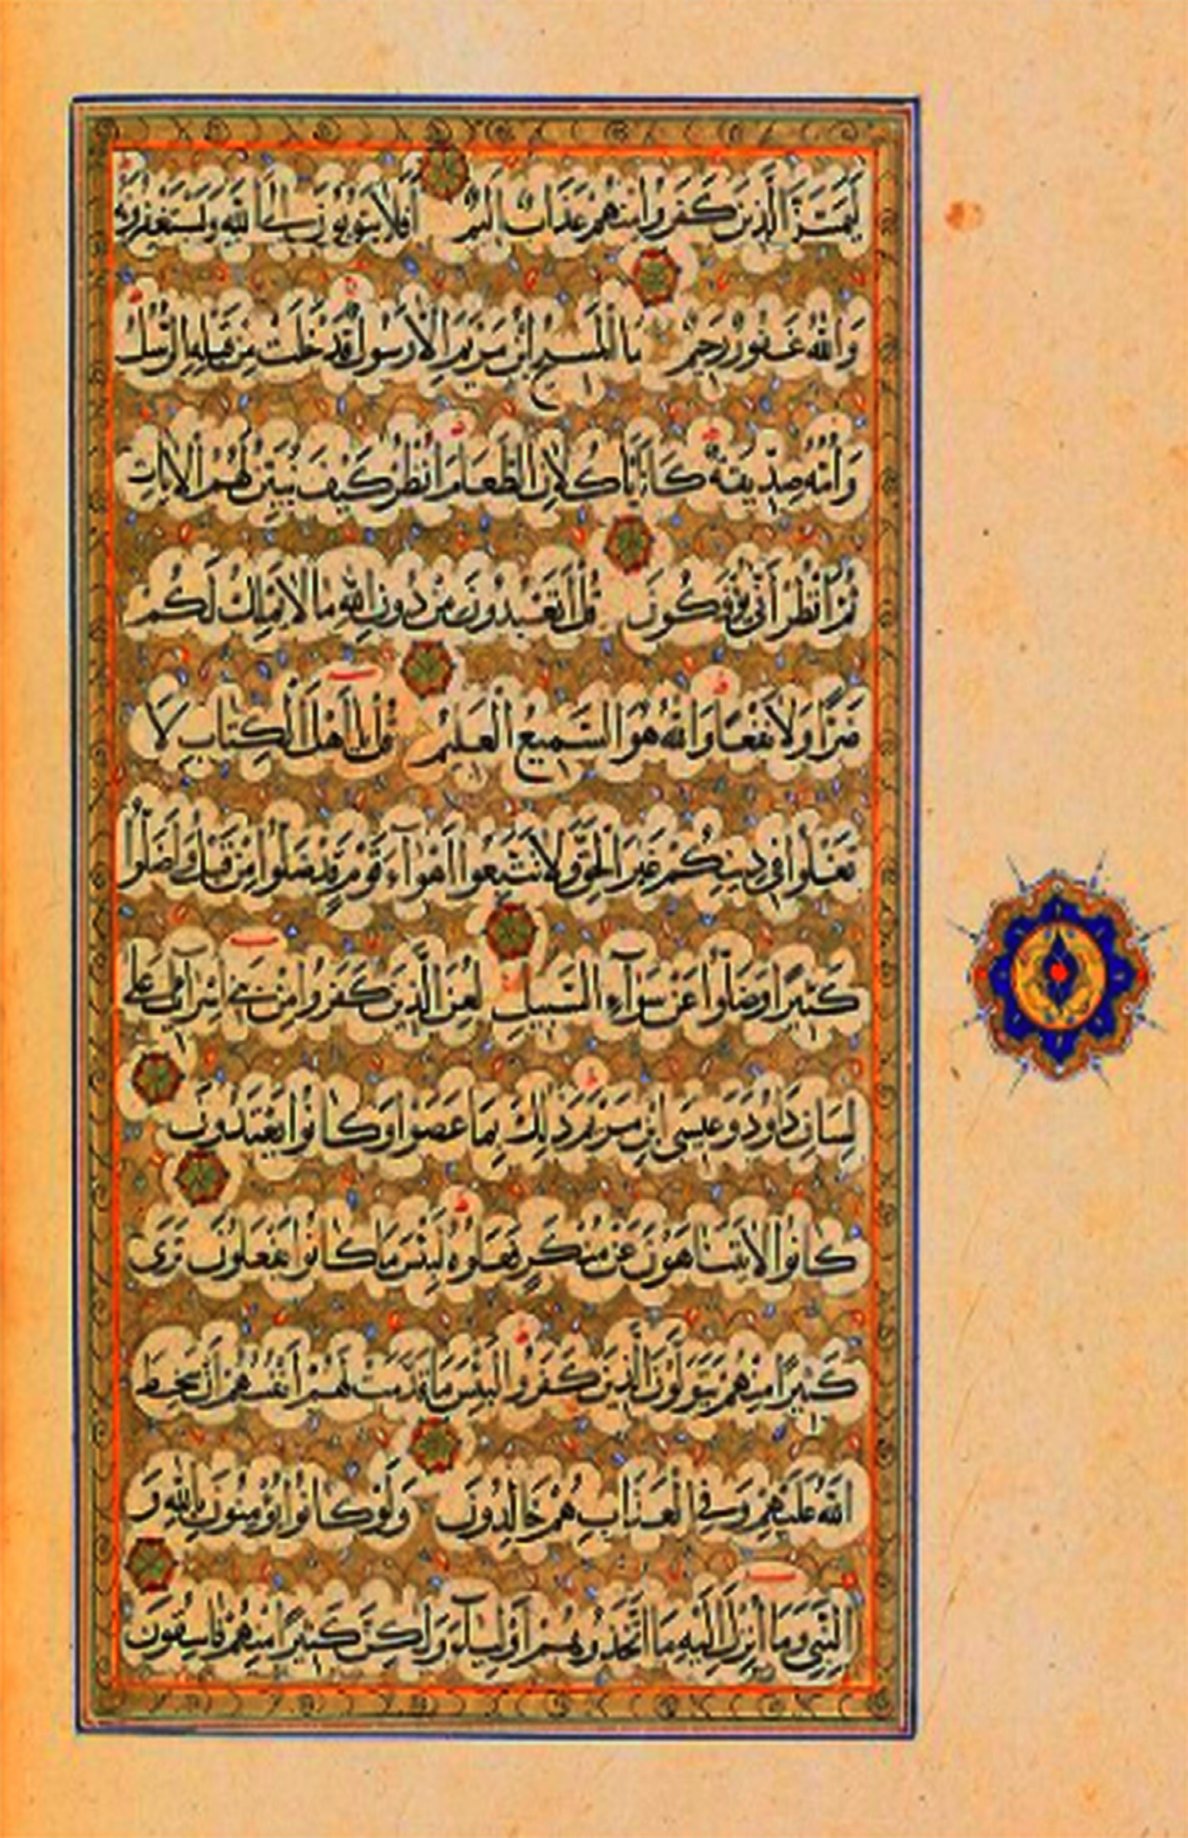 لَيَمَسَّنَّ الَّذِينَ كَفَرُوا مِنْهُمْ عَذَابٌ أَلِيمٌ أَفَلَا يَتُوبُونَ إِلَى اللَّهِ وَيَسْتَغْفِرُونَهُ
وَاللَّهُ غَفُورٌ رَحِيمٌ مَا الْمَسِيحُ ابْنُ مَرْيَمَ إِلَّا رَسُولٌ قَدْ خَلَتْ مِنْ قَبْلِهِ الرُّسُلُ
وَأُمُّهُ صِدِّيقَةٌ كَانَا يَأْكُلَانِ الطَّعَامَ انْظُرْ كَيْفَ نُبَيِّنُ لَهُمُ الْآيَاتِ
ثُمَّ انْظُرْ أَنَّى يُؤْفَكُونَ قُلْ أَتَعْبُدُونَ مِنْ دُونِ اللَّهِ مَا لَا يَمْلِكُ لَكُمْ
ضَرًّا وَلَا نَفْعًا وَاللَّهُ هُوَ السَّمِيعُ الْعَلِيمُ قُلْ يَا أَهْلَ الْكِتَابِ لَا
تَغْلُوا فِي دِينِكُمْ غَيْرَ الْحَقِّ وَلَا تَتَّبِعُوا أَهْوَاءَ قَوْمٍ قَدْ ضَلُّوا مِنْ قَبْلُ وَأَضَلُّوا
كَثِيرًا وَضَلُّوا عَنْ سَوَاءِ السَّبِيلِ لُعِنَ الَّذِينَ كَفَرُوا مِنْ بَنِي إِسْرَائِيلَ عَلَى
لِسَانِ دَاوُدَ وَعِيسَى ابْنِ مَرْيَمَ ذَلِكَ بِمَا عَصَوْا وَكَانُوا يَعْتَدُونَ
كَانُوا لَا يَتَنَاهَوْنَ عَنْ مُنْكَرٍ فَعَلُوهُ لَبِئْسَ مَا كَانُوا يَفْعَلُونَ تَرَى
كَثِيرًا مِنْهُمْ يَتَوَلَّوْنَ الَّذِينَ كَفَرُوا لَبِئْسَ مَا قَدَّمَتْ لَهُمْ أَنْفُسُهُمْ أَنْ سَخِطَ
اللَّهُ عَلَيْهِمْ وَفِي الْعَذَابِ هُمْ خَالِدُونَ وَلَوْ كَانُوا يُؤْمِنُونَ بِاللَّهِ وَ
النَّبِيِّ وَمَا أُنْزِلَ إِلَيْهِ مَا اتَّخَذُوهُمْ أَوْلِيَاءَ وَلَكِنَّ كَثِيرًا مِنْهُمْ فَاسِقُونَ